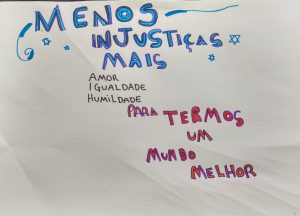 MENOS
INJUSTIÇAS
MAIS
AMOR
IGUALDADE
HUMILDADE
PARA TERMOS
UM
MUNDO
MELHOR